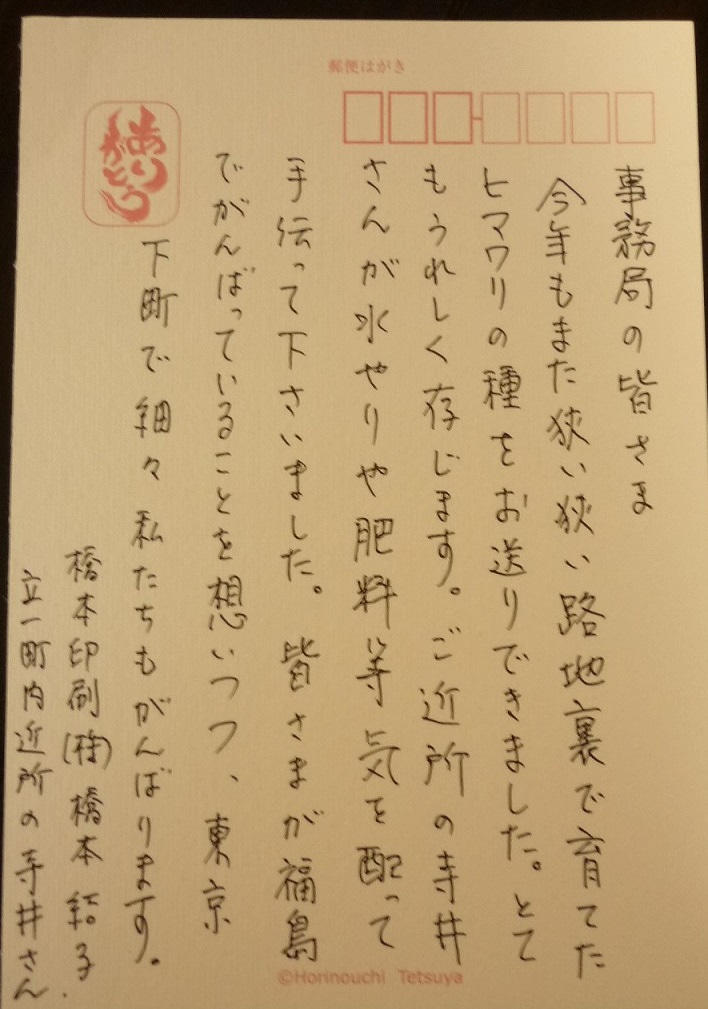 郵便はがき
ありがとう
事務局の皆さま
今年もまた狭い狭い路地裏で育てた
ヒマワリの種をお送りできました。とて
もうれしく存じます。ご近所の寺井
さんが水やりや肥料等気を配って
手伝って下さいました。皆さまが福島
でがんばっていることを想いつつ、東京
下町で細々私たちもがんばります。
橋本印刷(株)橋本 結子.
立一町内近所の寺井さん
©Horinouchi Tetsuya